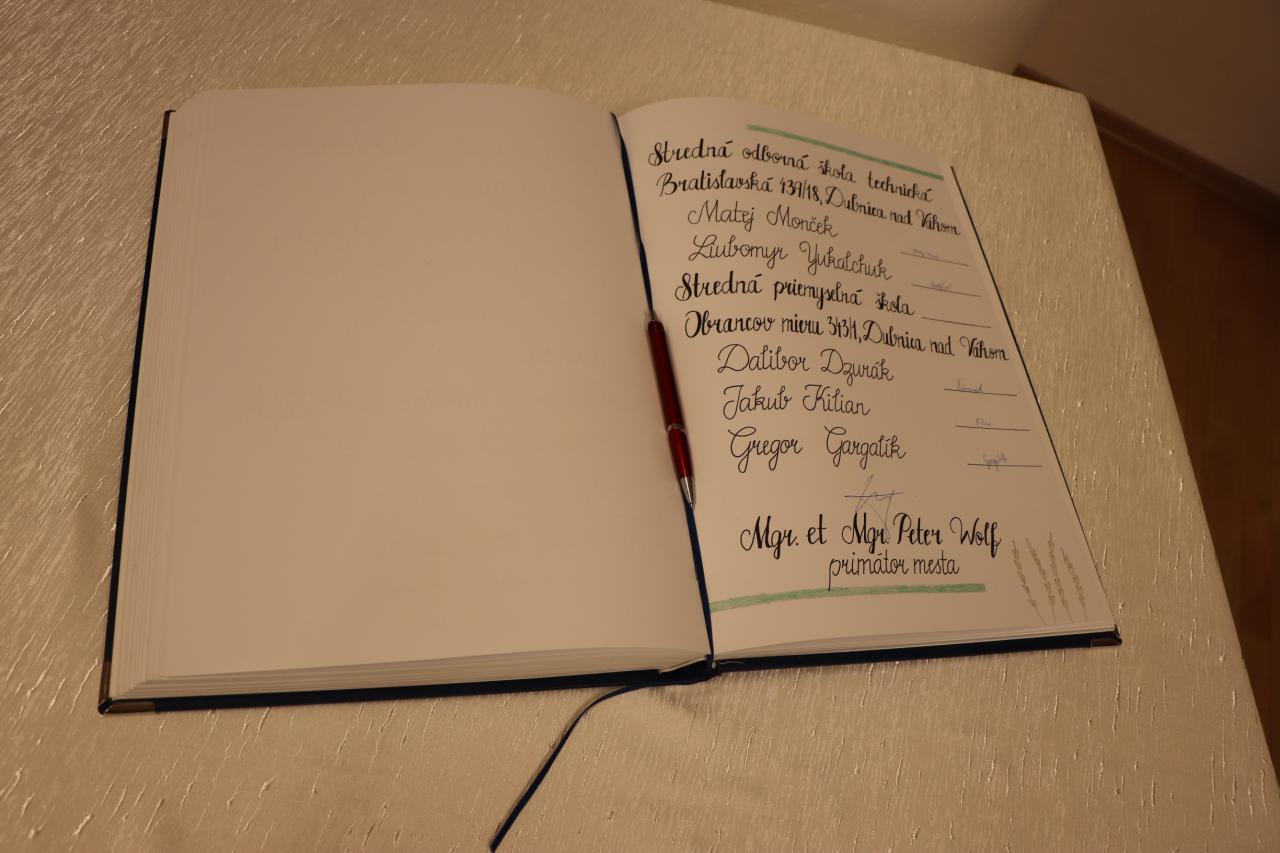 Stredná odborná škola technická
Bratislavská 439/18, Dubnica nad Váhom
Matej Monček
Liubomyr Yukalchuk
Stredná priemyselná škola
Obrancov mieru 343/1, Dubnica nad Váhom
Dalibor Dzurák
Jakub Kilian
Gregor Gargalík
Mgr. et Mgr. Peter Wolf
primátor mesta